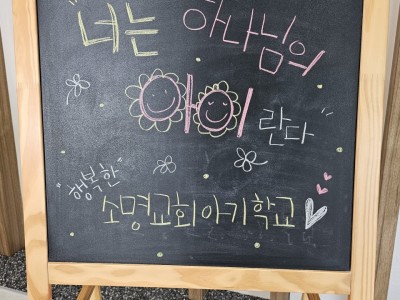 "너는 하나님의
아이란다"
"행복한"
소명교회아기학교